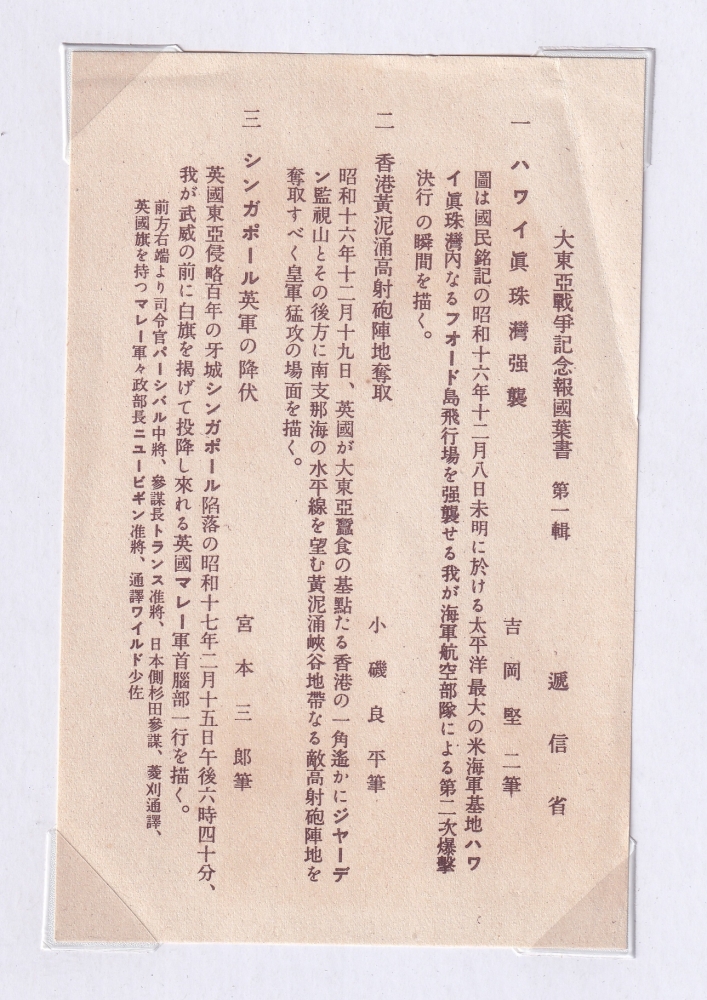 大東亞戰爭記念報國葉書　第一輯　遞信省
一　ハワイ眞珠灣强襲　吉岡堅二筆
圖は國民銘記の昭和十六年十二月八日未明に於ける太平洋最大の米海軍基地ハワ
イ眞珠灣內なるフオード島飛行場を强襲せる我が海軍航空部隊による第二次爆擊
決行の瞬間を描く。
二　香港黃泥涌高射砲陣地奪取　小磯良平筆
昭和十六年十二月十九日、英國が大東亞蠶食の基點たる香港の一角遙かにジヤーデ
ン監視山とその後方に南支那海の水平線を望む黃泥涌峽谷地帶なる敵高射砲陣地を
奪取すべく皇軍猛攻の場面を描く。
三　シンガポール英軍の降伏　宮本三郎筆
英國東亞侵略百年の牙城シンガポール陷落の昭和十七年二月十五日午後六時四十分、
我が武威の前に白旗を揭げて投降し來れる英國マレー軍首腦部一行を描く。
前方右端より司令官パーシバル中將、參謀長トランス准將、日本側杉田參謀、菱刈通譯、
英國旗を持つマレー軍々政部長ニユービギン准將、通譯ワイルド少佐